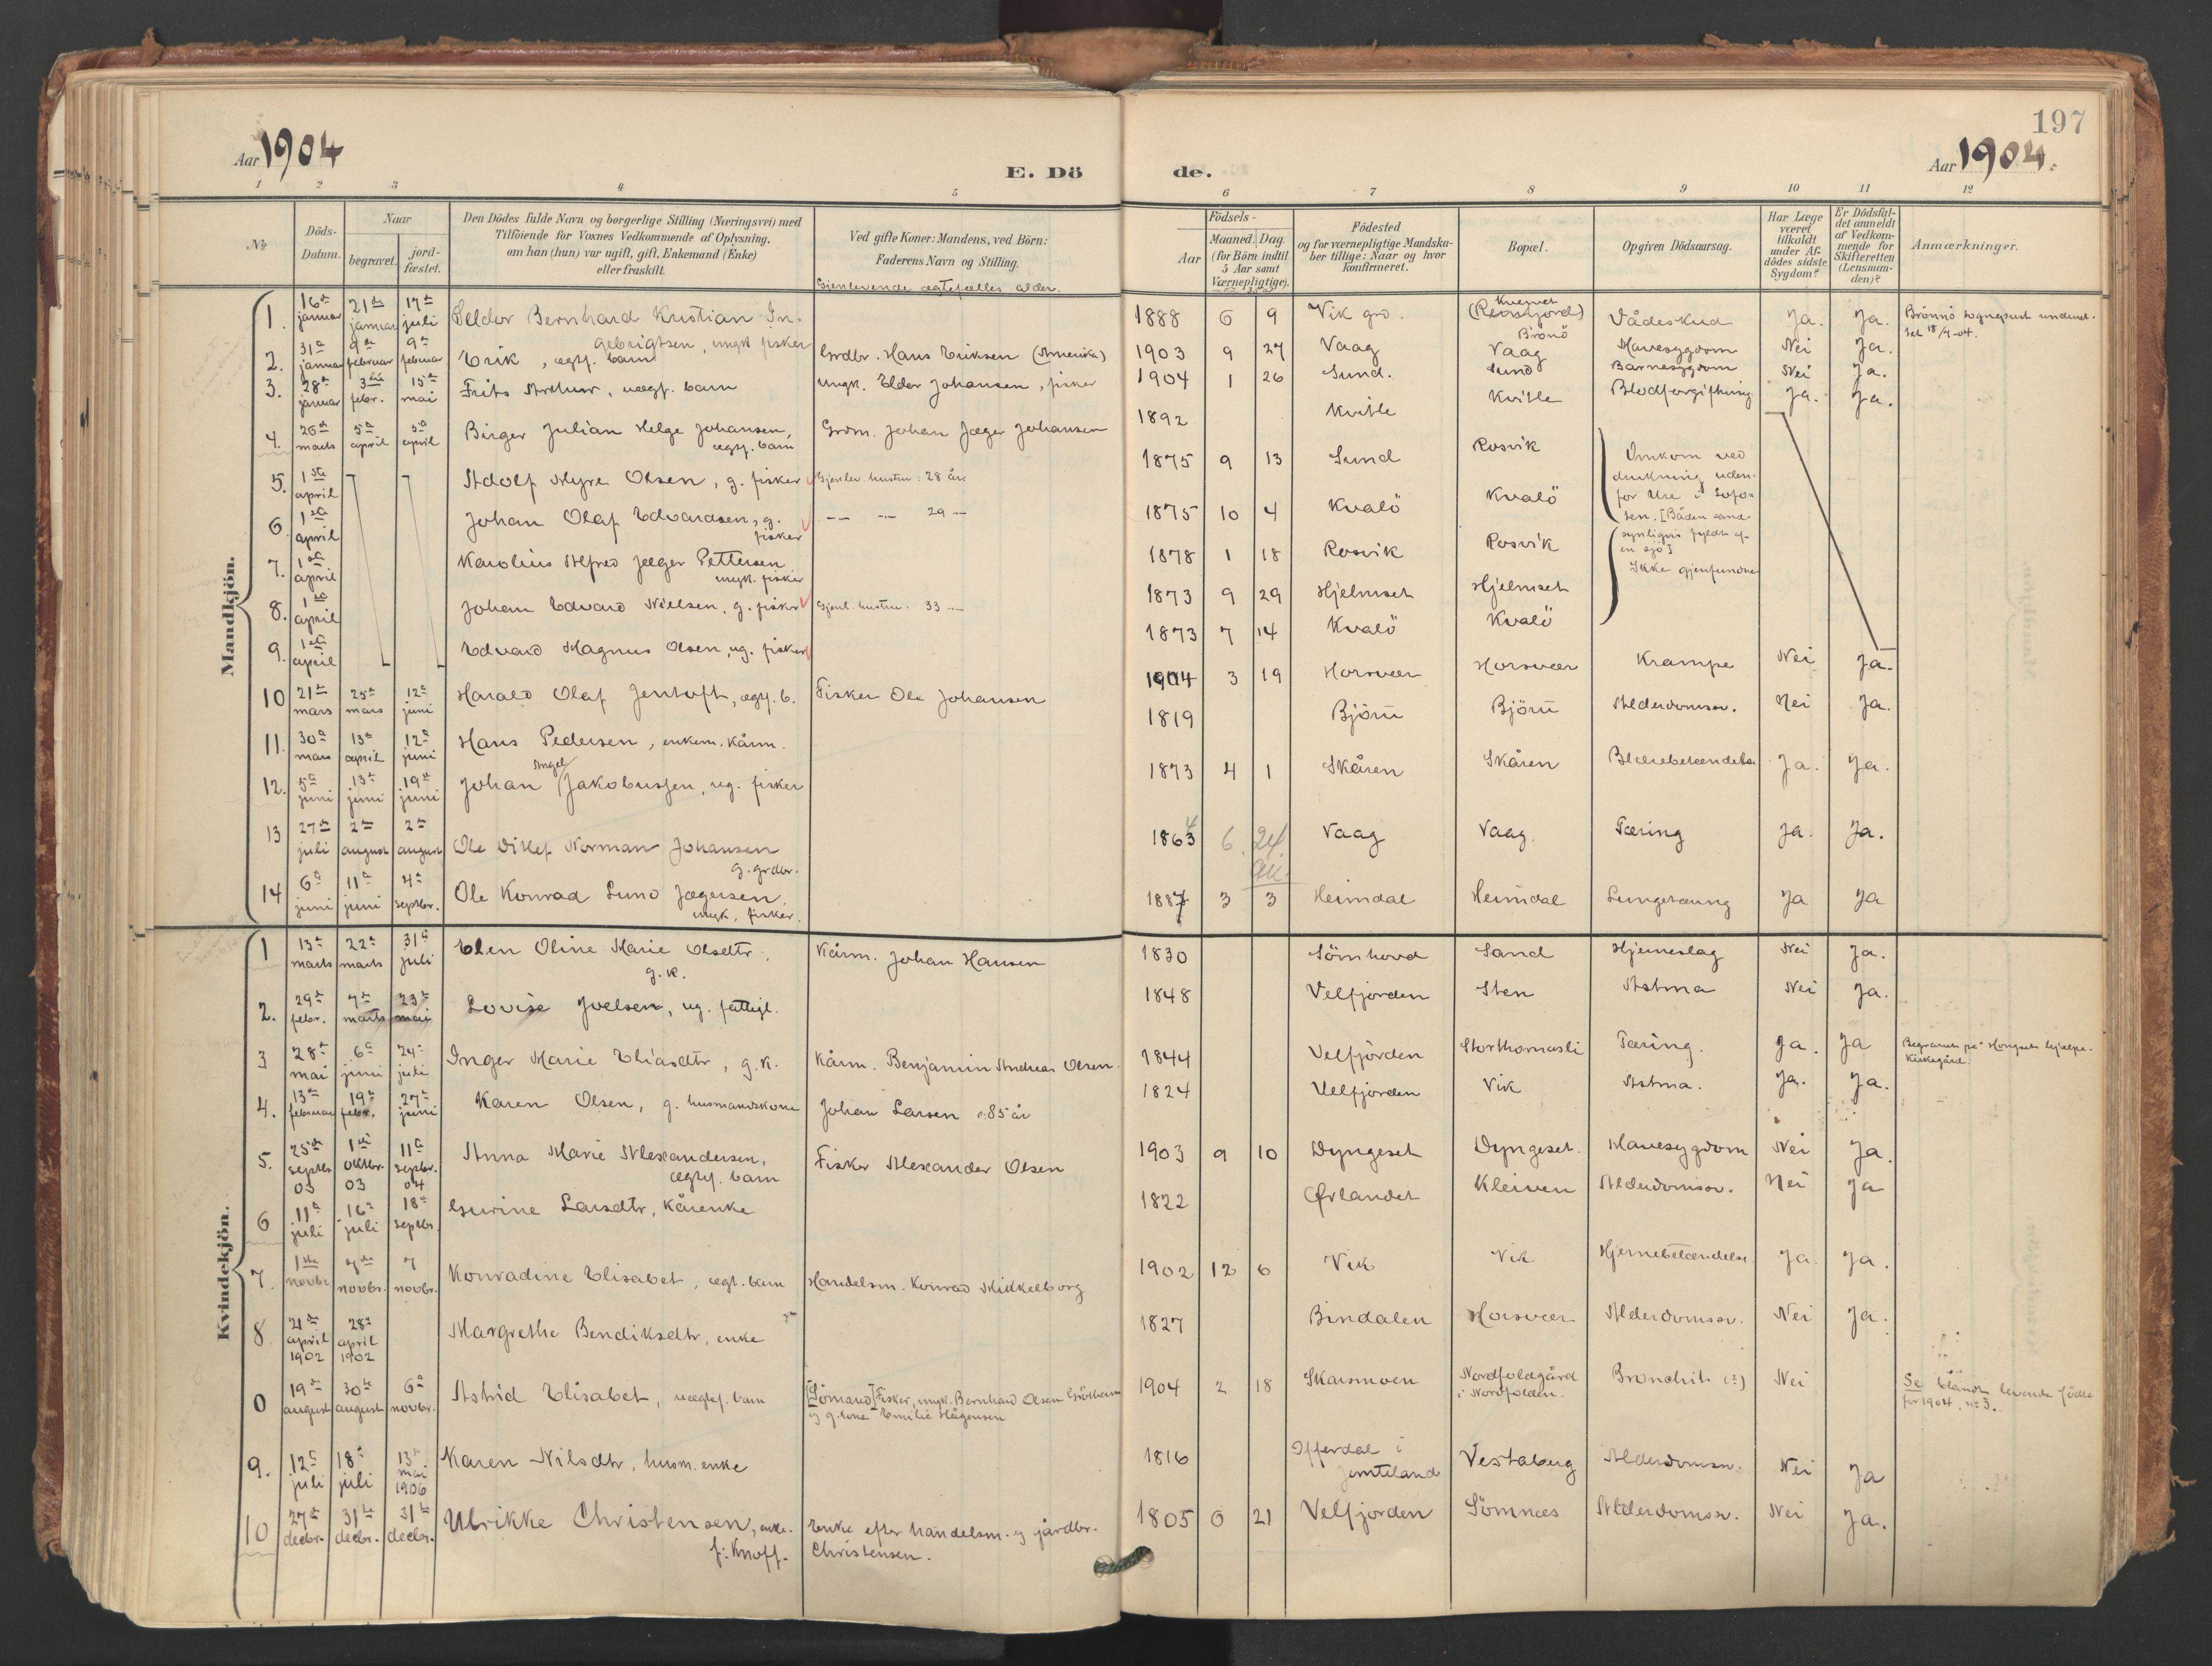 197
Aar 1904
E. Dö
de.
Aar 1904.
1 2 3 4 5 6 7 8 9 10 11 12
No
Döds-
Datum.
Naar
begravet.
jord-
fæstet.
Den Dödes fulde Navn og borgerlige Stilling (Næringsvei) med
Tilföiende for Voxnes Vedkommende af Oplysning,
om han (hun) var ugift, gift, Enkemand (Enke)
eller fraskilt.
Ved gifte Koner: Mandens, ved Börn:
Faderens Navn og Stilling.
Gjenlevende ægtefælles alder.
Födsels-
Aar
Maaned. Dag.
(for Börn indtil
5 Aar samt
Værnepligtige).
Födested
og for værnepligtige Mandska-
ber tillige: Naar og hvor
konfirmeret.
Bopæl.
Opgiven Dödsaarsag.
Har Læge
været
tilkaldt
under Af-
dödes sidste
Sygdom?
Er Dödsfal-
det anmeldt
af Vedkom-
mende for
Skifteretten
(Lensman-
den)?
Anmærkninger.
Mandkjön.
1. 16de januar 21de januar 17de juli Seldor Bernhard Kristian In-
gebrigtsen, ungk. fisker 1888 6 9 Vik grd. Brönö Vådeskud Ja. Ja. Brönnö sognepræst underret-
tet 18/4-04.
2. 31te januar 9de februar 9de februar Erik, ægtf. barn Grdbr. Hans Eriksen (Amerika) 1903 9 27 Vaag Vaag Mavesygdom Nei Ja.
3. 28de januar 3die febr. 15de mai Frits Arthur, uægtf. barn Ungk. Elder Johansen, fisker 1904 1 26 Sund. Sund Barnesygdom Nei Ja.
4. 26de marts 5te april 5te april Birger Julian Helge Johansen,
ægtf. barn Grdm. Johan Jæger Johansen 1892 Kvitle Kvitle Blodforgiftning Ja. Ja.
5. 1ste april Adolf Myre Olsen, g. fisker Gjenlev. hustru: 28 år 1875 9 13 Sund Rosvik Omkom ved
druknin͏g uden-
for Ure i Lofo-
ten. [Båden sand-
synligvis fyldt af
en sjö]
Ikke gjenfundne
6. 1ste april Johan Olaf Edvardsen, g.
fisker 29 1875 10 4 Kvalö Kvalö
7. 1ste april Karolius Alfred Jæger Pettersen
ungk. fisker 1878 1 18 Rosvik Rosvik
8. 1ste april Johan Edvard Nielsen, g. fisker Gjenl. hustru: 33 1873 9 29 Hjelmset Hjelmset
9. 1ste april Edvard Magnus Olsen, ug. fisker 1873 7 14 Kvalö Kvalö
10 21de mars 25de mars 12te juni Harald Olaf Jentoft, ægtf. b. Fisker Ole Johansen 1904 3 19 Horsvær Horsvær Krampe Nei Ja.
11. 30te mars 13de april 12te juni Hans Pedersen, enkem. kårm. 1819 Björn Björn Alderdomssv. Nei Ja.
12. 5te juni 13de juni 19de juni Johan Angel Jakobussen, ug. fisker 1873 4 1 Skåren Skåren Blærebetændelse Ja. Ja.
13 27de juli 2den august 2den august Ole Ditlef Norman Johansen
g. grdbr. 1863 4 6 24 Vaag Vaag. Tæring Ja. Ja.
14 6te juni 11te juni 4de septbr. Ole Konrad Lund Jægersen,
ungk. fisker. 1887 3 3 Heimdal Heimdal Lungetæring Ja Ja
Kvindekjön.
1 13de marts 22de marts 31te juli Elen Oline Marie Olsdtr.
g.k. Kårm. Johan Hansen 1830 Sömhovd Sand Hjerneslag Nei Ja.
2. 29de febr. 7de marts 23de mai Lovise Joelsen, ug. fattigl. 1848 Velfjorden Sten Astma Nei Ja.
3 28de mai 6te juni 24de juli Inger Marie Eliasdtr, g.k. Kårm. Benjamin Andreas Olsen. 1844 Velfjorden Storthornasli Tæring. Ja. Ja Begravet på Hongsets hjælpe-
kirkegård.
4. 13de februar 19de febr. 27de juni Karen Olsen, g. husmandskone Johan Larsen 85 år 1824 Velfjorden Vik Astma. Ja. Ja.
5. 25de septbr 03 1ste oktbr. 03 11te septbr. 04 Anna Marie Alexandersen,
ægtf. barn Fisker Alexander Olsen 1903 9 10 Dyngeset Dyngeset. Mavesygdom Nei Ja.
6 11te juli 16de juli 18de septbr. Gurine Larsdtr, kårenke 1822 Ørlandet Kleiven Alderdomssv. Nei Ja
7. 1ste novbr. 7de novbr. 7 novbr. Konradine Elisabet, ægt. barn Handelsm. Konrad Mikkelborg 1902 12 6 Vik Vik Hjernebetændelse Ja. Ja.
8 21de april 1902 28de april 1902 Margrethe Bendiksdtr, enke 1827 Bindalen Horsvær Alderdomssv. Nei Ja.
0 19de august 30te august 6te novbr. Astrid Elisabet, uægtef. barn [Sömand] Fisker, ungk. Bernhard Olsen Grötheim
og g. kone Emilie Hågensen 1904 2 18 Skarsmoen Nordfoldgård
i Nordfolden. Bronchit (?) Nei Se blandt levende födte
for 1904, nr 3.
9. 12te juli 18de juli 13de mai 1906 Karen Nilsdtr, husm. enke 1816 Offerdal i
Jemteland Vestaberg Alderdomssv. Nei Ja
10 27de decbr. 31te decbr. 31te decbr. Ulrikke Christensen, enke.
f: Knoff. Enke efter handelsm. og jordbr.
Christensen. 1805 6 21 Velfjorden Sömnes Alderdomssv. Nei Ja.